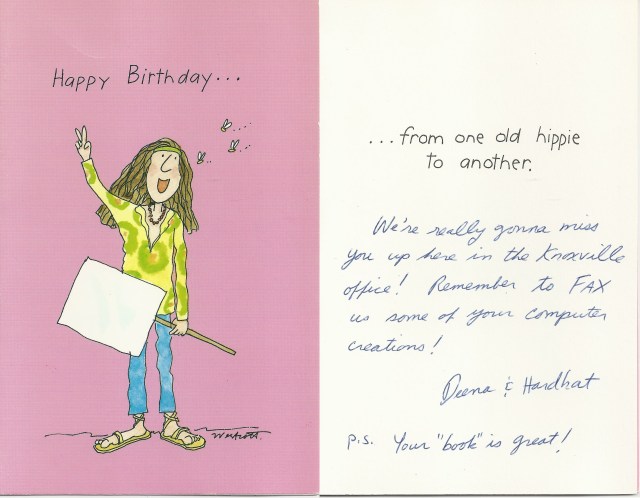 Happy Birthday...
...from one old hippie
to another.
We're really gonna miss
you up here in the Knoxville
office! Remember to FAX
us some of your computer
creations!
Deena & Hardhat
P.S. Your "book" is great!